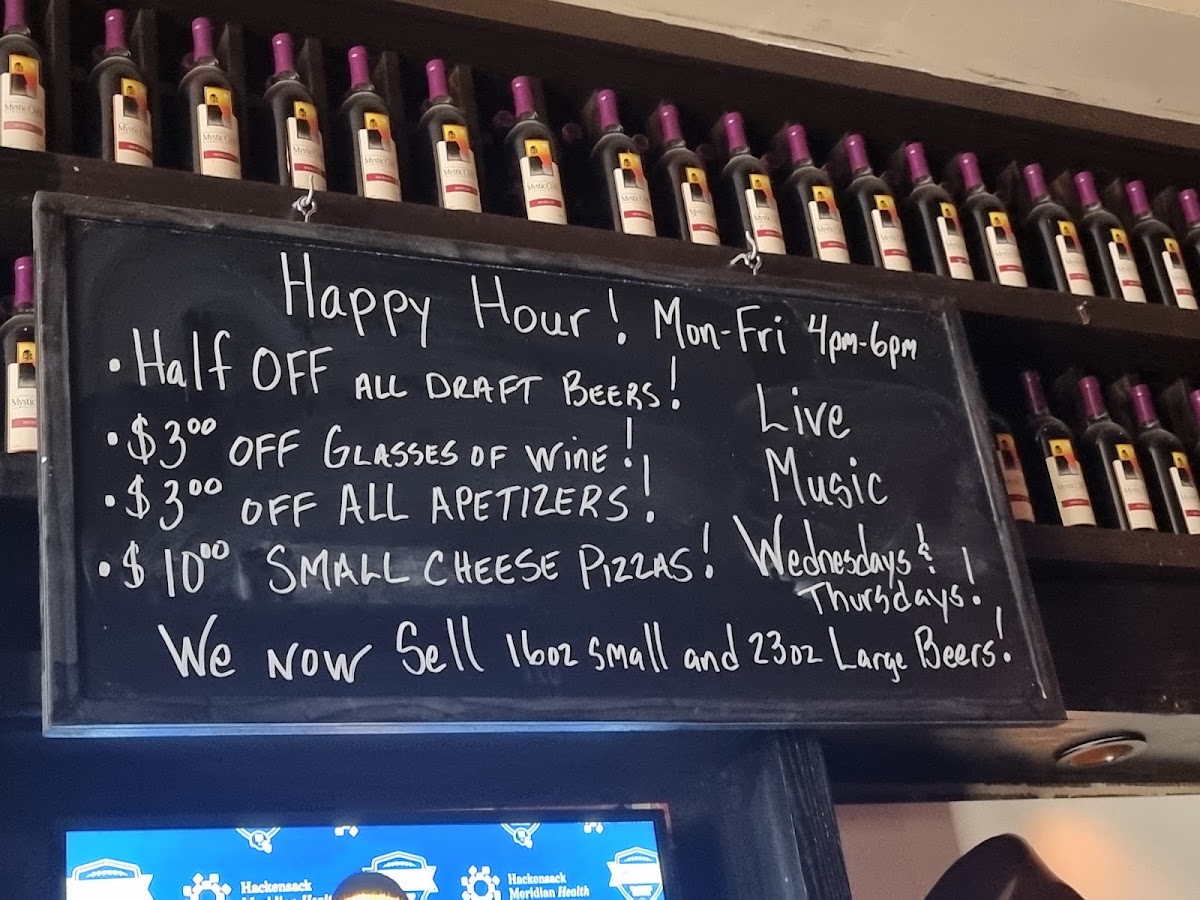 Happy Hour! Mon-Fri 4pm-6pm
• Half OFF ALL DRAFT BEERS!
• $3⁰⁰ OFF GLASSES OF WINE!
• $3⁰⁰ OFF ALL APETIZERS!
• $10⁰⁰ SMALL CHEESE PIZZAS!
Live
Music
Wednesdays &
Thursdays!
We NOW Sell 16oz small and 23oz Large Beers!
Hackensack
Meridian Health
Hackensack
Meridian Health